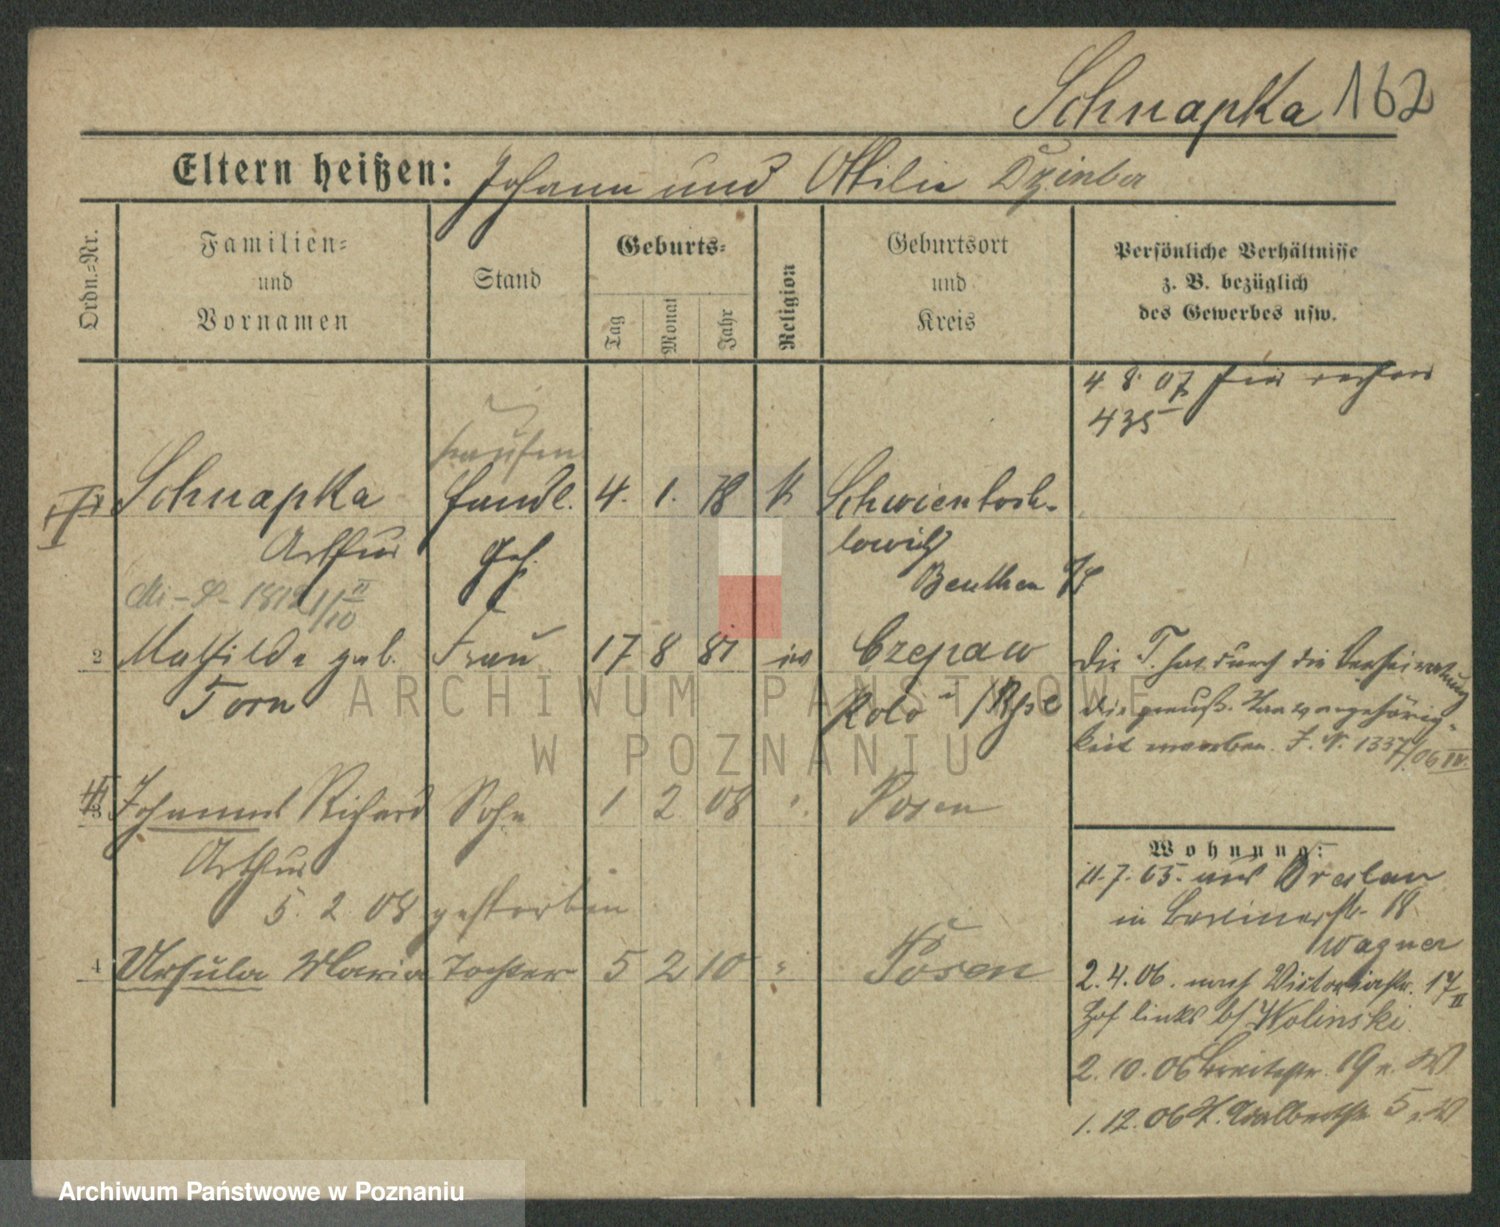 Schnapka 162
Eltern heißen: Johann und Ottilie Dzimba
Ordn.=Nr.
Familien=
und
Vornamen
Stand
Geburts=
Tag
Monat
Jahr
Religion
Geburtsort
und
Kreis
Persönliche Verhältnisse
z. B. bezüglich
des Gewerbes usw.
4 8 07
435
Schnapka Handl. 4. 1. 78 k Schwientoch-
Arthur Geh. lowitz
Beuthen
2 Mathilde geb. Frau 17 8 81 Czepaw
Torn Kolo
die T. hat durch die Verheiratung
die preuß. Staatsangehörig-
keit erworben. J. N. 1337/06 IV.
3 Johannes Richard Sohn 1 2 08 Posen
Arthur
5. 2 08 gestorben
4 Ursula Maria Tochter 5 2 10 " Posen
Wohnung:
11.7.05. aus Breslau
in Berlinerstr. 18
Wagner
2.4.06. nach Victoriastr. 17 II
Hof links b/ Wolinski
2.10.06 Breitestr. 19 e. W
1.12.06 St. Adalbertstr. 5 e. W
ARCHIWUM PAŃSTWOWE
W POZNANIU
Archiwum Państwowe w Poznaniu